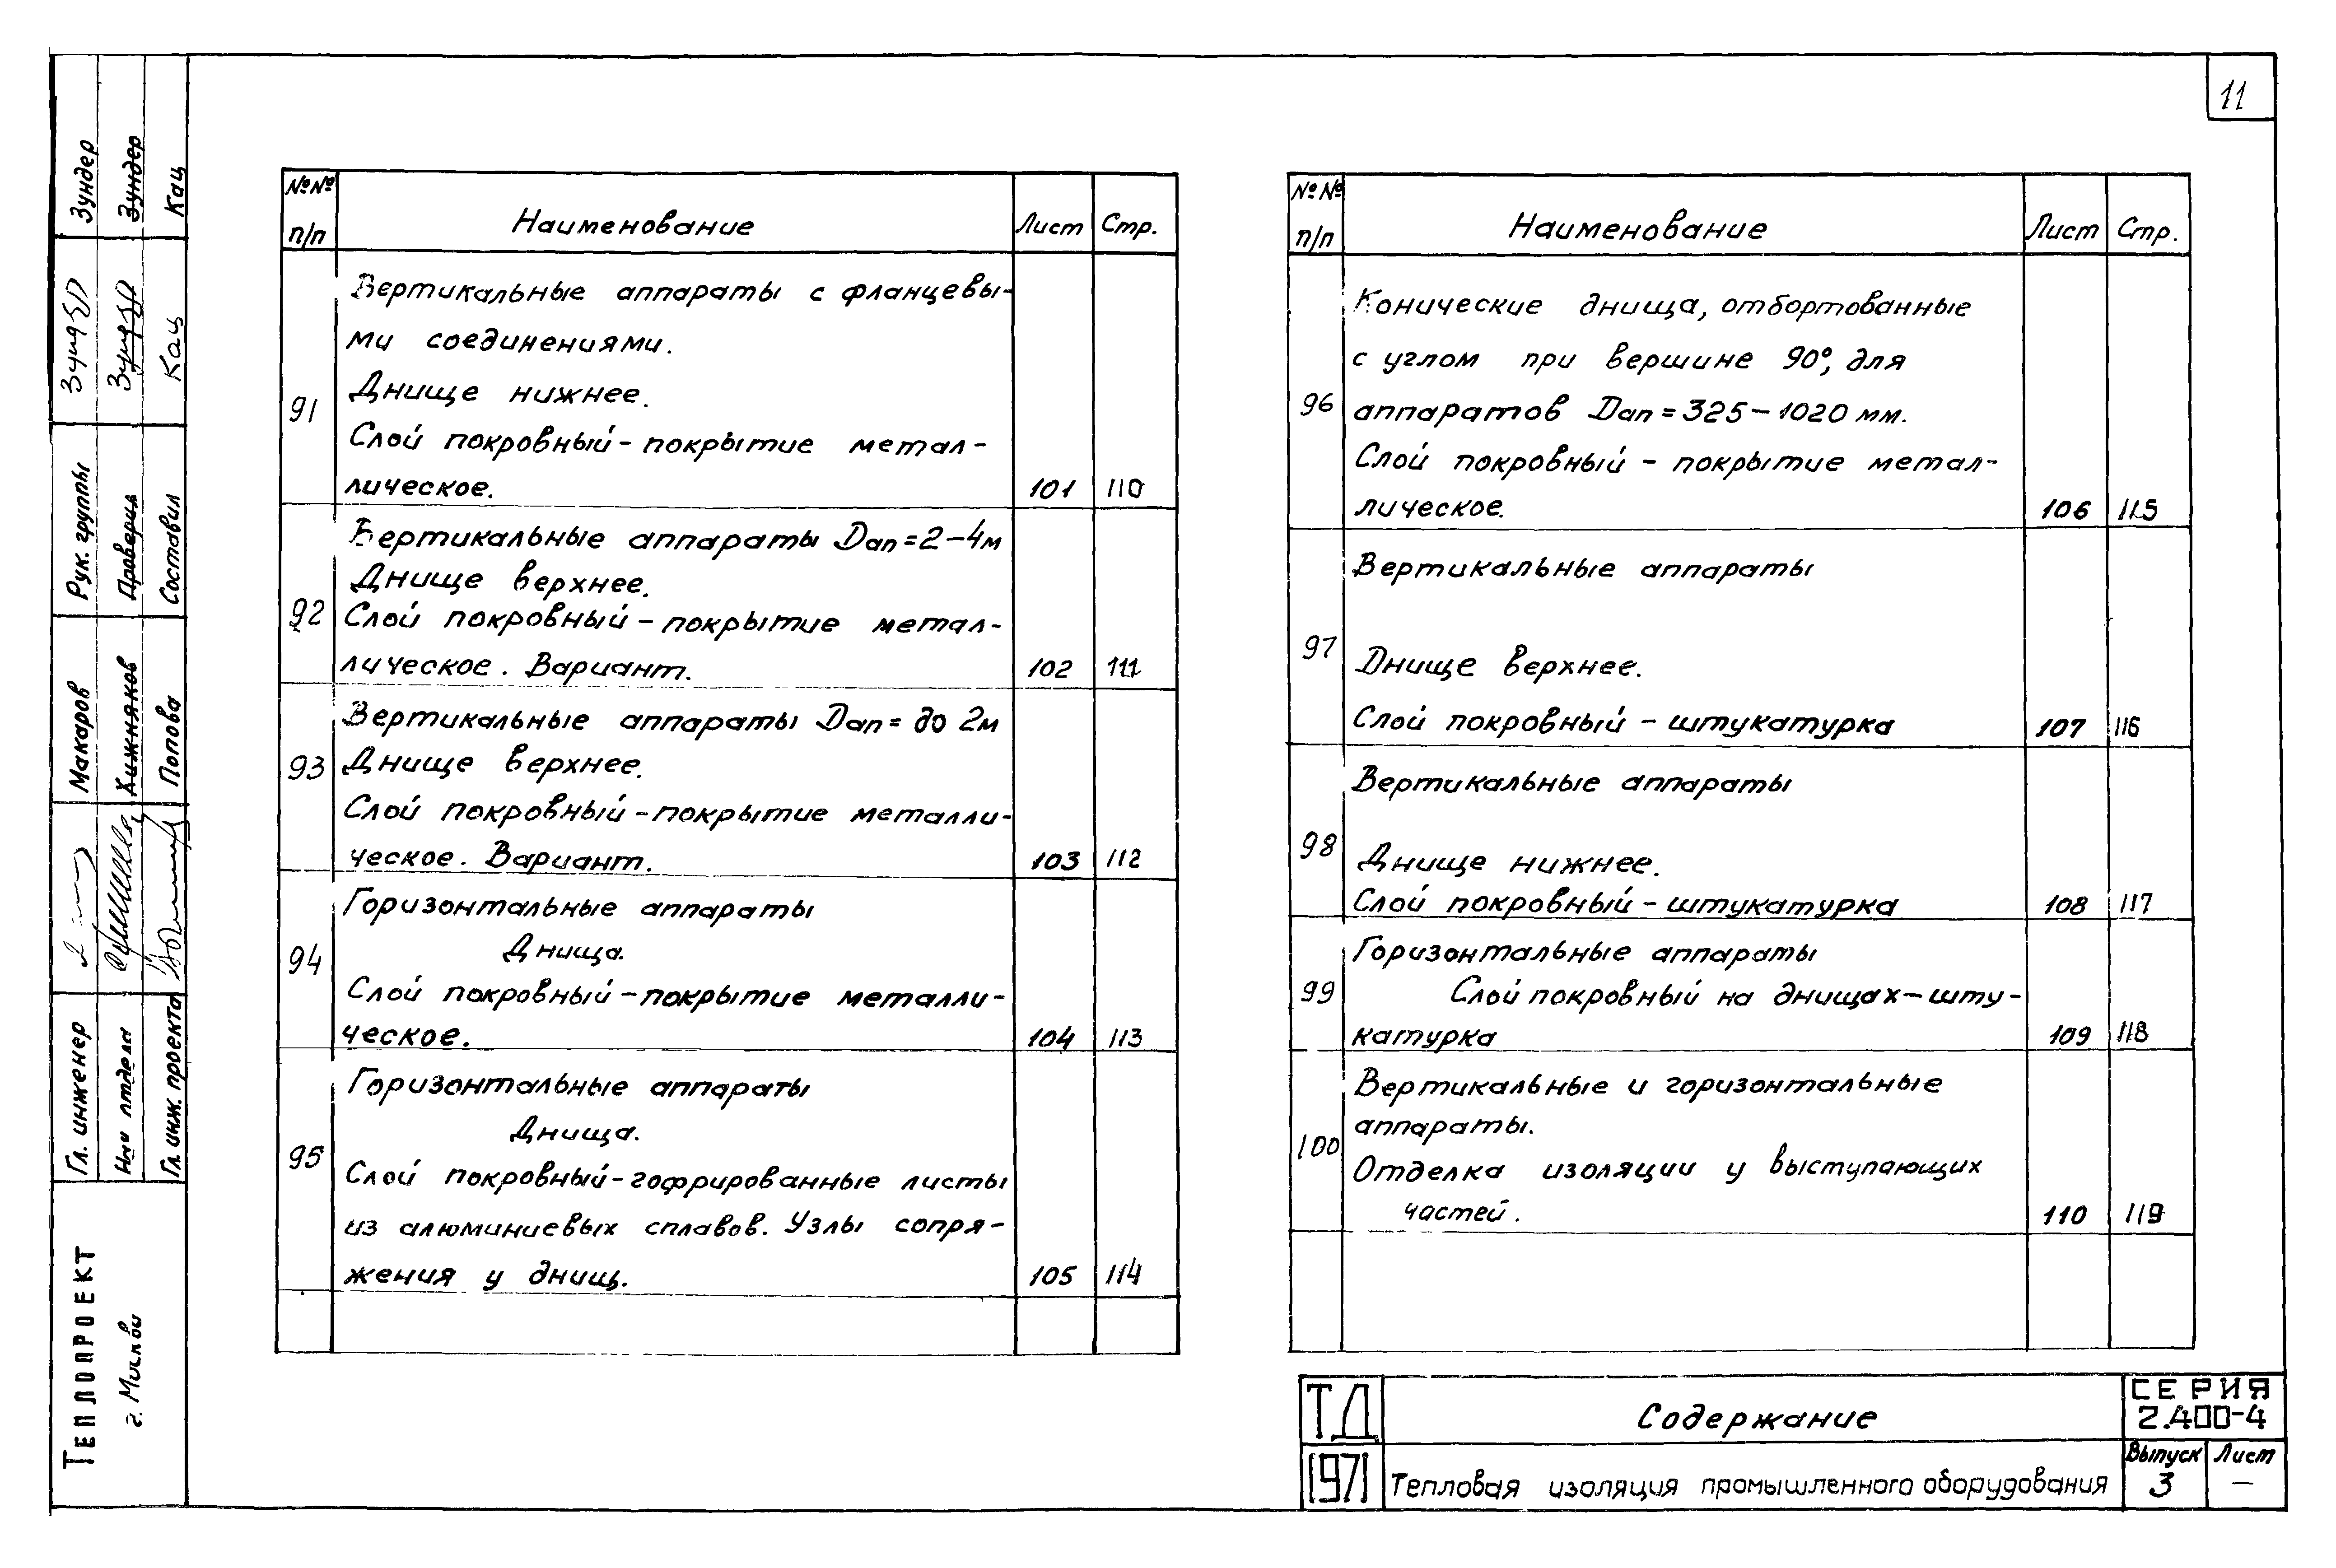 11
№№ п/п Наименование Лист Стр.
Вертикальные аппараты с фланцевы-
ми соединениями.
Днище нижнее.
91
Слой покровный - покрытие метал-
лическое. 101 110
Вертикальные аппараты Dап = 2 - 4м
Днище верхнее.
92 Слой покровный - покрытие метал-
лическое. Вариант. 102 111
Вертикальные аппараты Dап = до 2м
93 Днище верхнее.
Слой покровный - покрытие металли-
ческое. Вариант. 103 112
Горизонтальные аппараты
94 Днища.
Слой покровный - покрытие металли-
ческое. 104 113
Горизонтальные аппараты
Днища.
95
Слой покровный - гофрированные листы
из алюминиевых сплавов. Узлы сопря-
жения у днищ. 105 114
№№ п/п Наименование Лист Стр.
Конические днища, отбортованные
с углом при вершине 90°, для
96 аппаратов Dап = 325 - 1020 мм.
Слой покровный - покрытие метал-
лическое. 106 115
Вертикальные аппараты
97 Днище верхнее.
Слой покровный - штукатурка 107 116
Вертикальные аппараты
98 Днище нижнее.
Слой покровный - штукатурка 108 117
Горизонтальные аппараты
99 Слой покровный на днищах - шту-
катурка 109 118
Вертикальные и горизонтальные
аппараты.
100
Отделка изоляции у выступающих
частей. 110 119
ТД Содержание СЕРИЯ
2.400-4
1971 Тепловая изоляция промышленного оборудования Выпуск Лист
3 —
Теплопроект
г. Москва
Гл. инженер Макаров Рук. группы Зундер
отдела Хижняков Проверил Зундер
Гл. инж. проекта Попова Составил Кац Кац